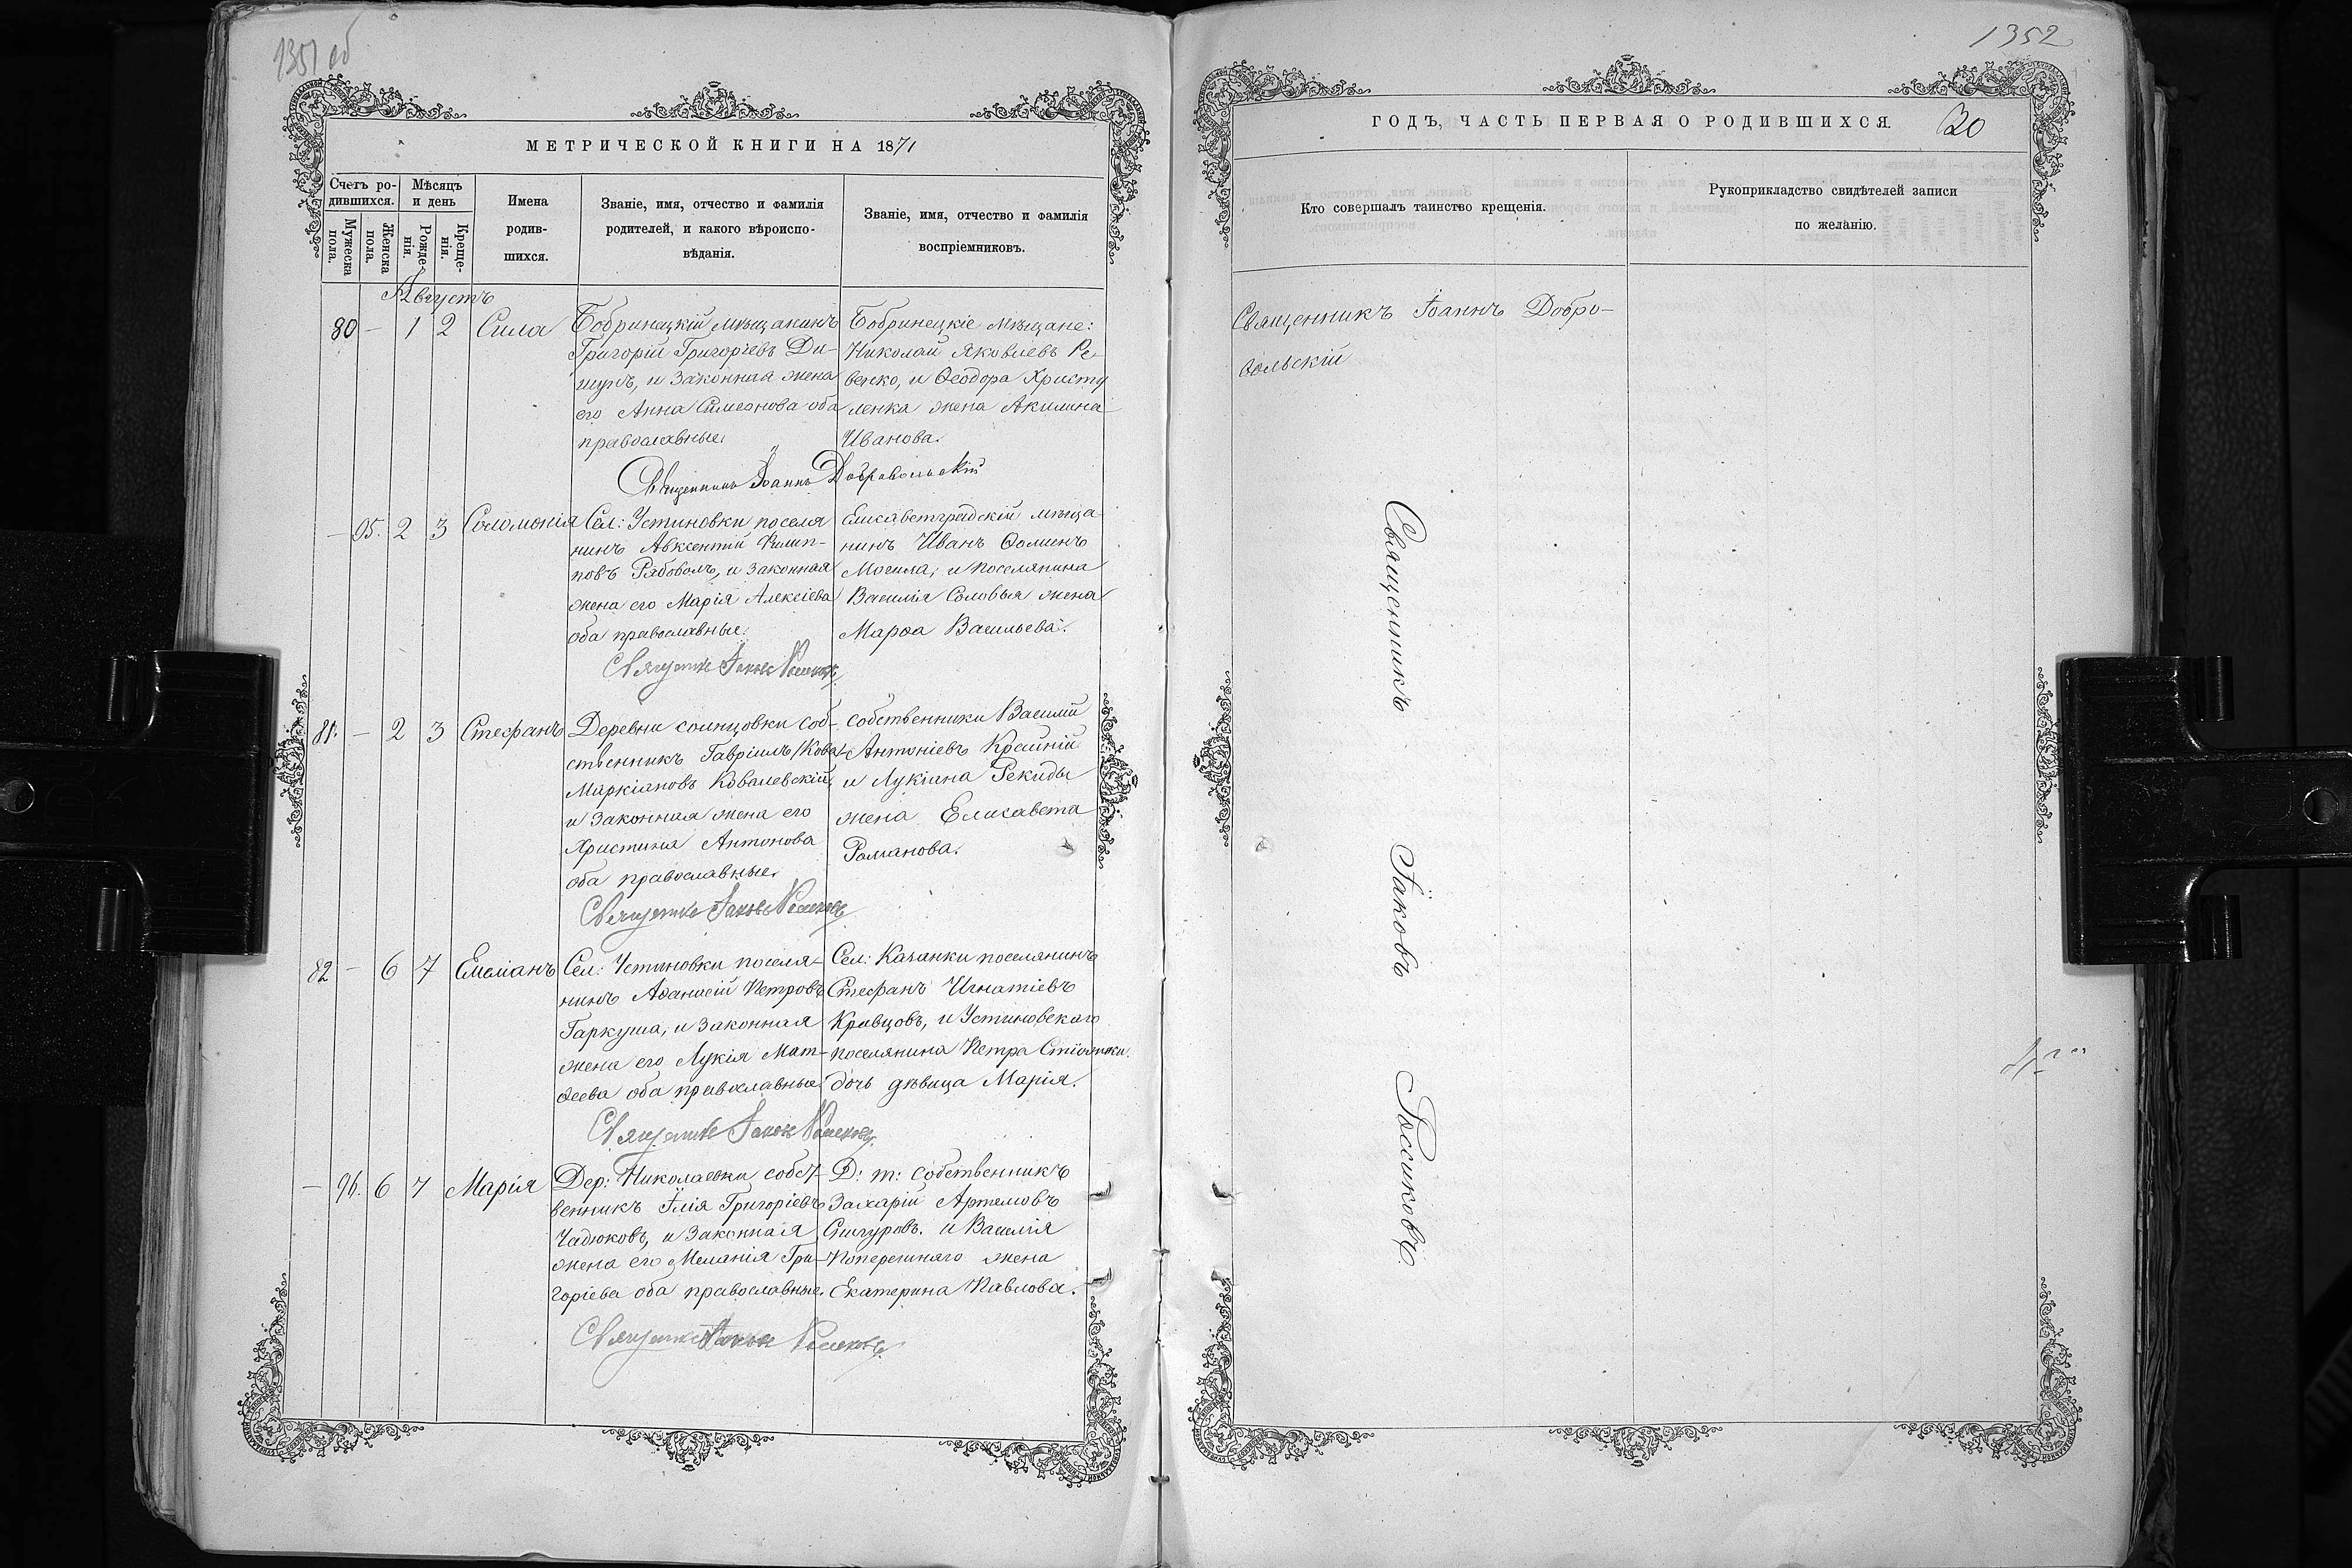 1351 об
МЕТРИЧЕСКОЙ КНИГИ НА 1871
Счетъ родившихся.
Мѣсяцъ и день
Мужеска пола.
Женска пола.
Рожденія.
Крещенія.
Имена родившихся.
Званіе, имя, отчество и фамилія
родителей, и какого вѣроиспо-
вѣданія.
Званіе, имя, отчество и фамилія
воспріемниковъ.
Августъ
80 — 1 2 Сила
Бобринецкій мѣщанинъ
Григорій Григоріевъ
и законная жена
его Анна Симеонова оба
православные.
Бобринецкіе мѣщане:
Николай Яковлевъ Ре-
венко, и Ѳеодора Христу
ленка жена Акилина
Иванова.
Священникъ Іоаннъ Добровольскій
— 95. 2 3 Соломонія
Сел: Устиновки поселя
нинъ Авксентій Филип-
повъ Рябоволъ, и законная
жена его Марія Алексіева
оба православные.
Елисаветградскій мѣща
нинъ Иванъ Ѳоминъ
Могила, и поселянина
Василія Соловья жена
Марѳа Васильева.
Священникъ Іаковъ
81. — 2 3 Стефанъ
Деревни солнцовки соб-
ственникъ Гавріилъ
Маркіановъ Ковалевскій,
и законная жена его
Христина Антонова
оба православные.
собственники Василій
Антоніевъ Крайній
и Лукіана Рекиды
жена Елисавета
Романова.
Священникъ Іаковъ
82 — 6 7 Емеліанъ
Сел: Устиновки поселя-
нинъ Аѳанасій Петровъ
Гаркуша, и законная
жена его Лукія Мат-
ѳеева оба православные
Сел: Качанки поселянинъ
Стефанъ Игнатіевъ
Кравцовъ, и Устиновскаго
поселянина Петра
дочь дѣвица Марія.
Священникъ Іаковъ
— 96. 6 7 Марія
Дер: Николаевки собст-
венникъ Илія Григоріевъ
Чадюковъ, и законная
жена его Меланія Гри-
горіева оба православные.
Д: т: собственникъ
Захарій Артемовъ
Снигуровъ. и Василія
Поперешняго жена
Екатерина Павлова.
Священникъ Іаковъ
1352
ГОДЪ, ЧАСТЬ ПЕРВАЯ О РОДИВШИХСЯ.
30
Кто совершалъ таинство крещенія.
Рукоприкладство свидѣтелей записи
по желанію.
Священникъ Іоаннъ Добро-
вольскій
Священникъ Іаковъ Россиковъ